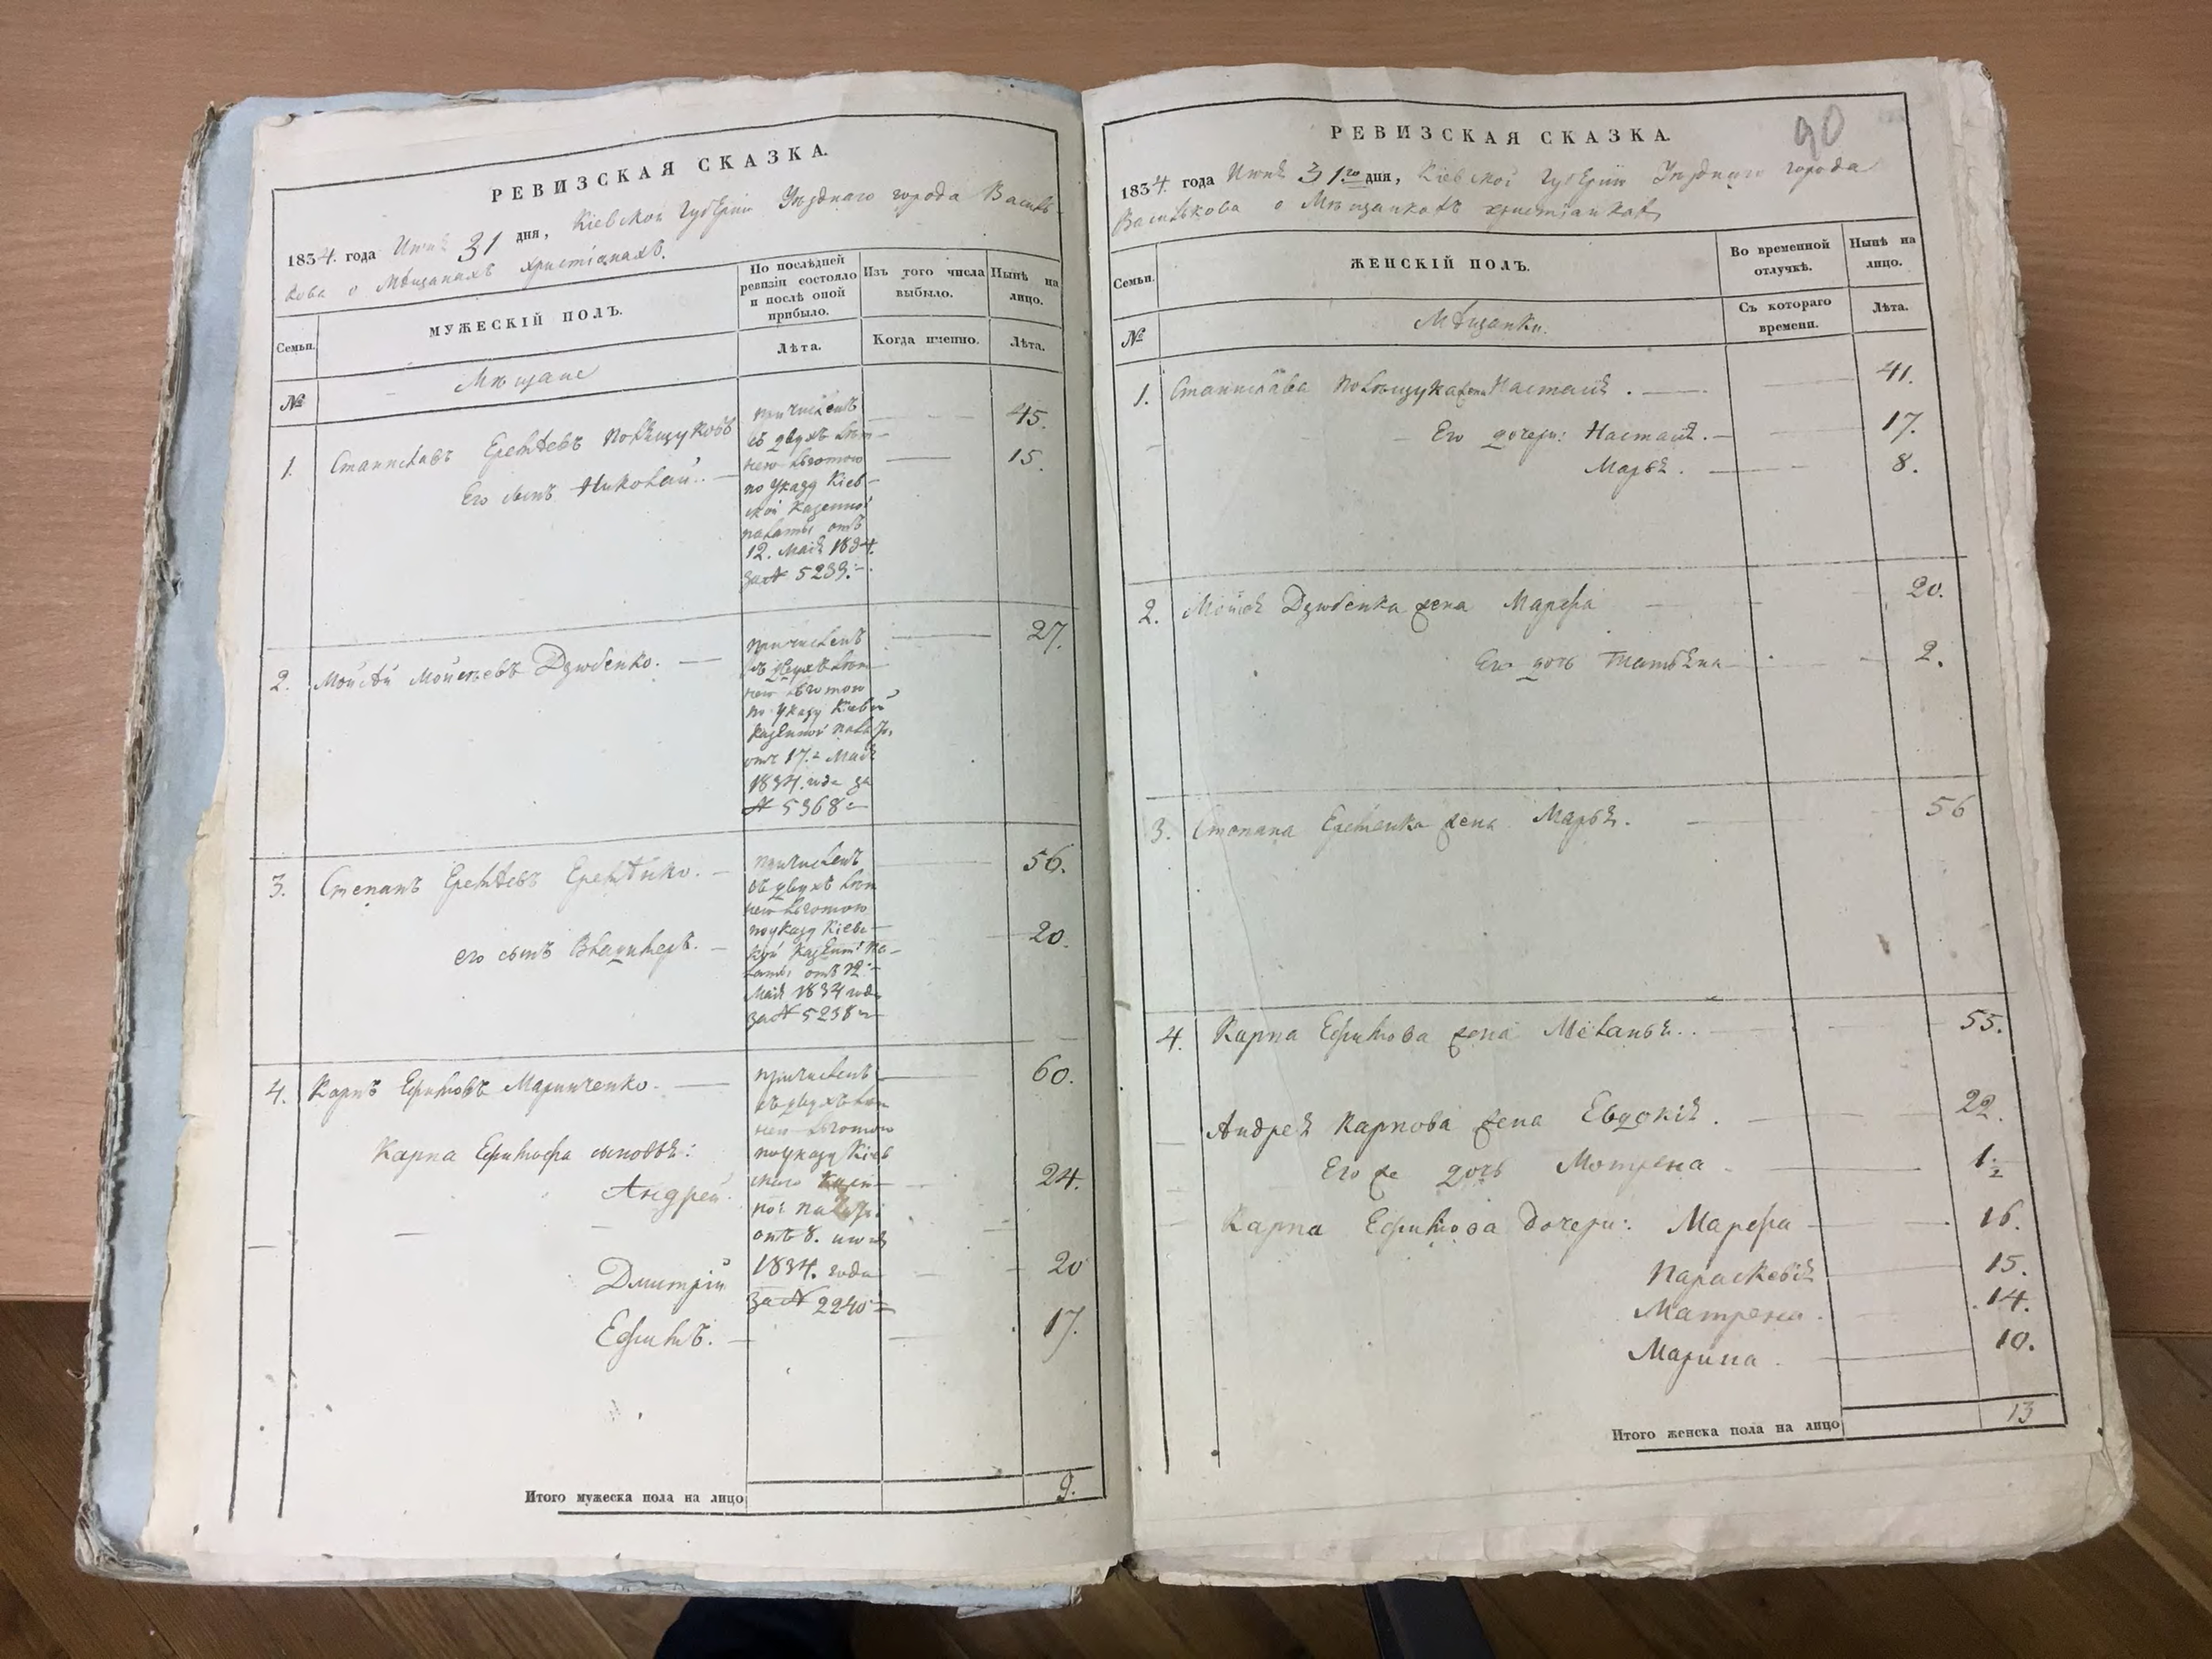 РЕВИЗСКАЯ СКАЗКА.
1834. года 31 дня, Кіевской Губерніи Уѣзднаго города Василь-
кова о Мѣщанахъ христіанахъ.
Семьи.
МУЖЕСКІЙ ПОЛЪ.
По послѣдней
ревизіи состояло
и послѣ оной
прибыло.
Изъ того числа
выбыло.
Нынѣ на
лицо.
Лѣта.
Когда именно.
Лѣта.
№
Мѣщане
1. Станиславъ Еремѣевъ Полѣщуковъ 45.
Его сынъ Николай. 15.
причисленъ
съ двухъ лѣт-
нею льготою
по указу Кіев-
ской Казенной
палаты отъ
12. Маія 1834.
за № 5239.
2. Мойсѣй Мойсѣевъ Дзюбенко. 27.
причисленъ
съ двухъ лѣт-
нею льготою
по указу Кіевской
Казенной палаты,
отъ 17. Маія
1834. года за
№ 5368
3. Степанъ Еремѣевъ Еремѣнко. 56.
его сынъ Владимеръ. 20.
причисленъ
съ двухъ лѣт
нею льготою
по указу Кіевс-
кой Казенной Па-
латы отъ 12
Маія 1834 года
за № 5238
4. Карпъ Ефимовъ Маринченко. 60.
Карпа Ефимова сыновья:
Андрей 24.
Дмитрій 20
Ефимъ. 17.
причисленъ
съ двухъ лѣт
нею льготою
по указу Кіев
ской Казен-
ной палаты
отъ 8. июня
1834. года
за № 2240
Итого мужеска пола на лицо 9.
90
РЕВИЗСКАЯ СКАЗКА.
1834. года 31го дня, Кіевской Губерніи Уѣзднаго города
Василькова о Мѣщанкахъ христіанкахъ
Семьи.
ЖЕНСКІЙ ПОЛЪ.
Во временной
отлучкѣ.
Нынѣ на
лицо.
№
Мѣщанки.
Съ котораго
времени.
Лѣта.
1. Станислава Полѣщука жена Настасія. 41.
Его дочери: Настасія. 17.
Марья. 8.
2. Мойсея Дзюбенка жена Марфа 20.
Его дочь Татьяна 2.
3. Степана Еременка жена Марья. 56
4. Карпа Ефимова жена Меланья. 55.
Андрея Карпова жена Евдокія. 22.
Его же дочь Мотрена 1.
Карпа Ефимова дочери: Марфа 16.
Параскевія 15.
Матрена. 14.
Марина. 10.
Итого женска пола на лицо 13